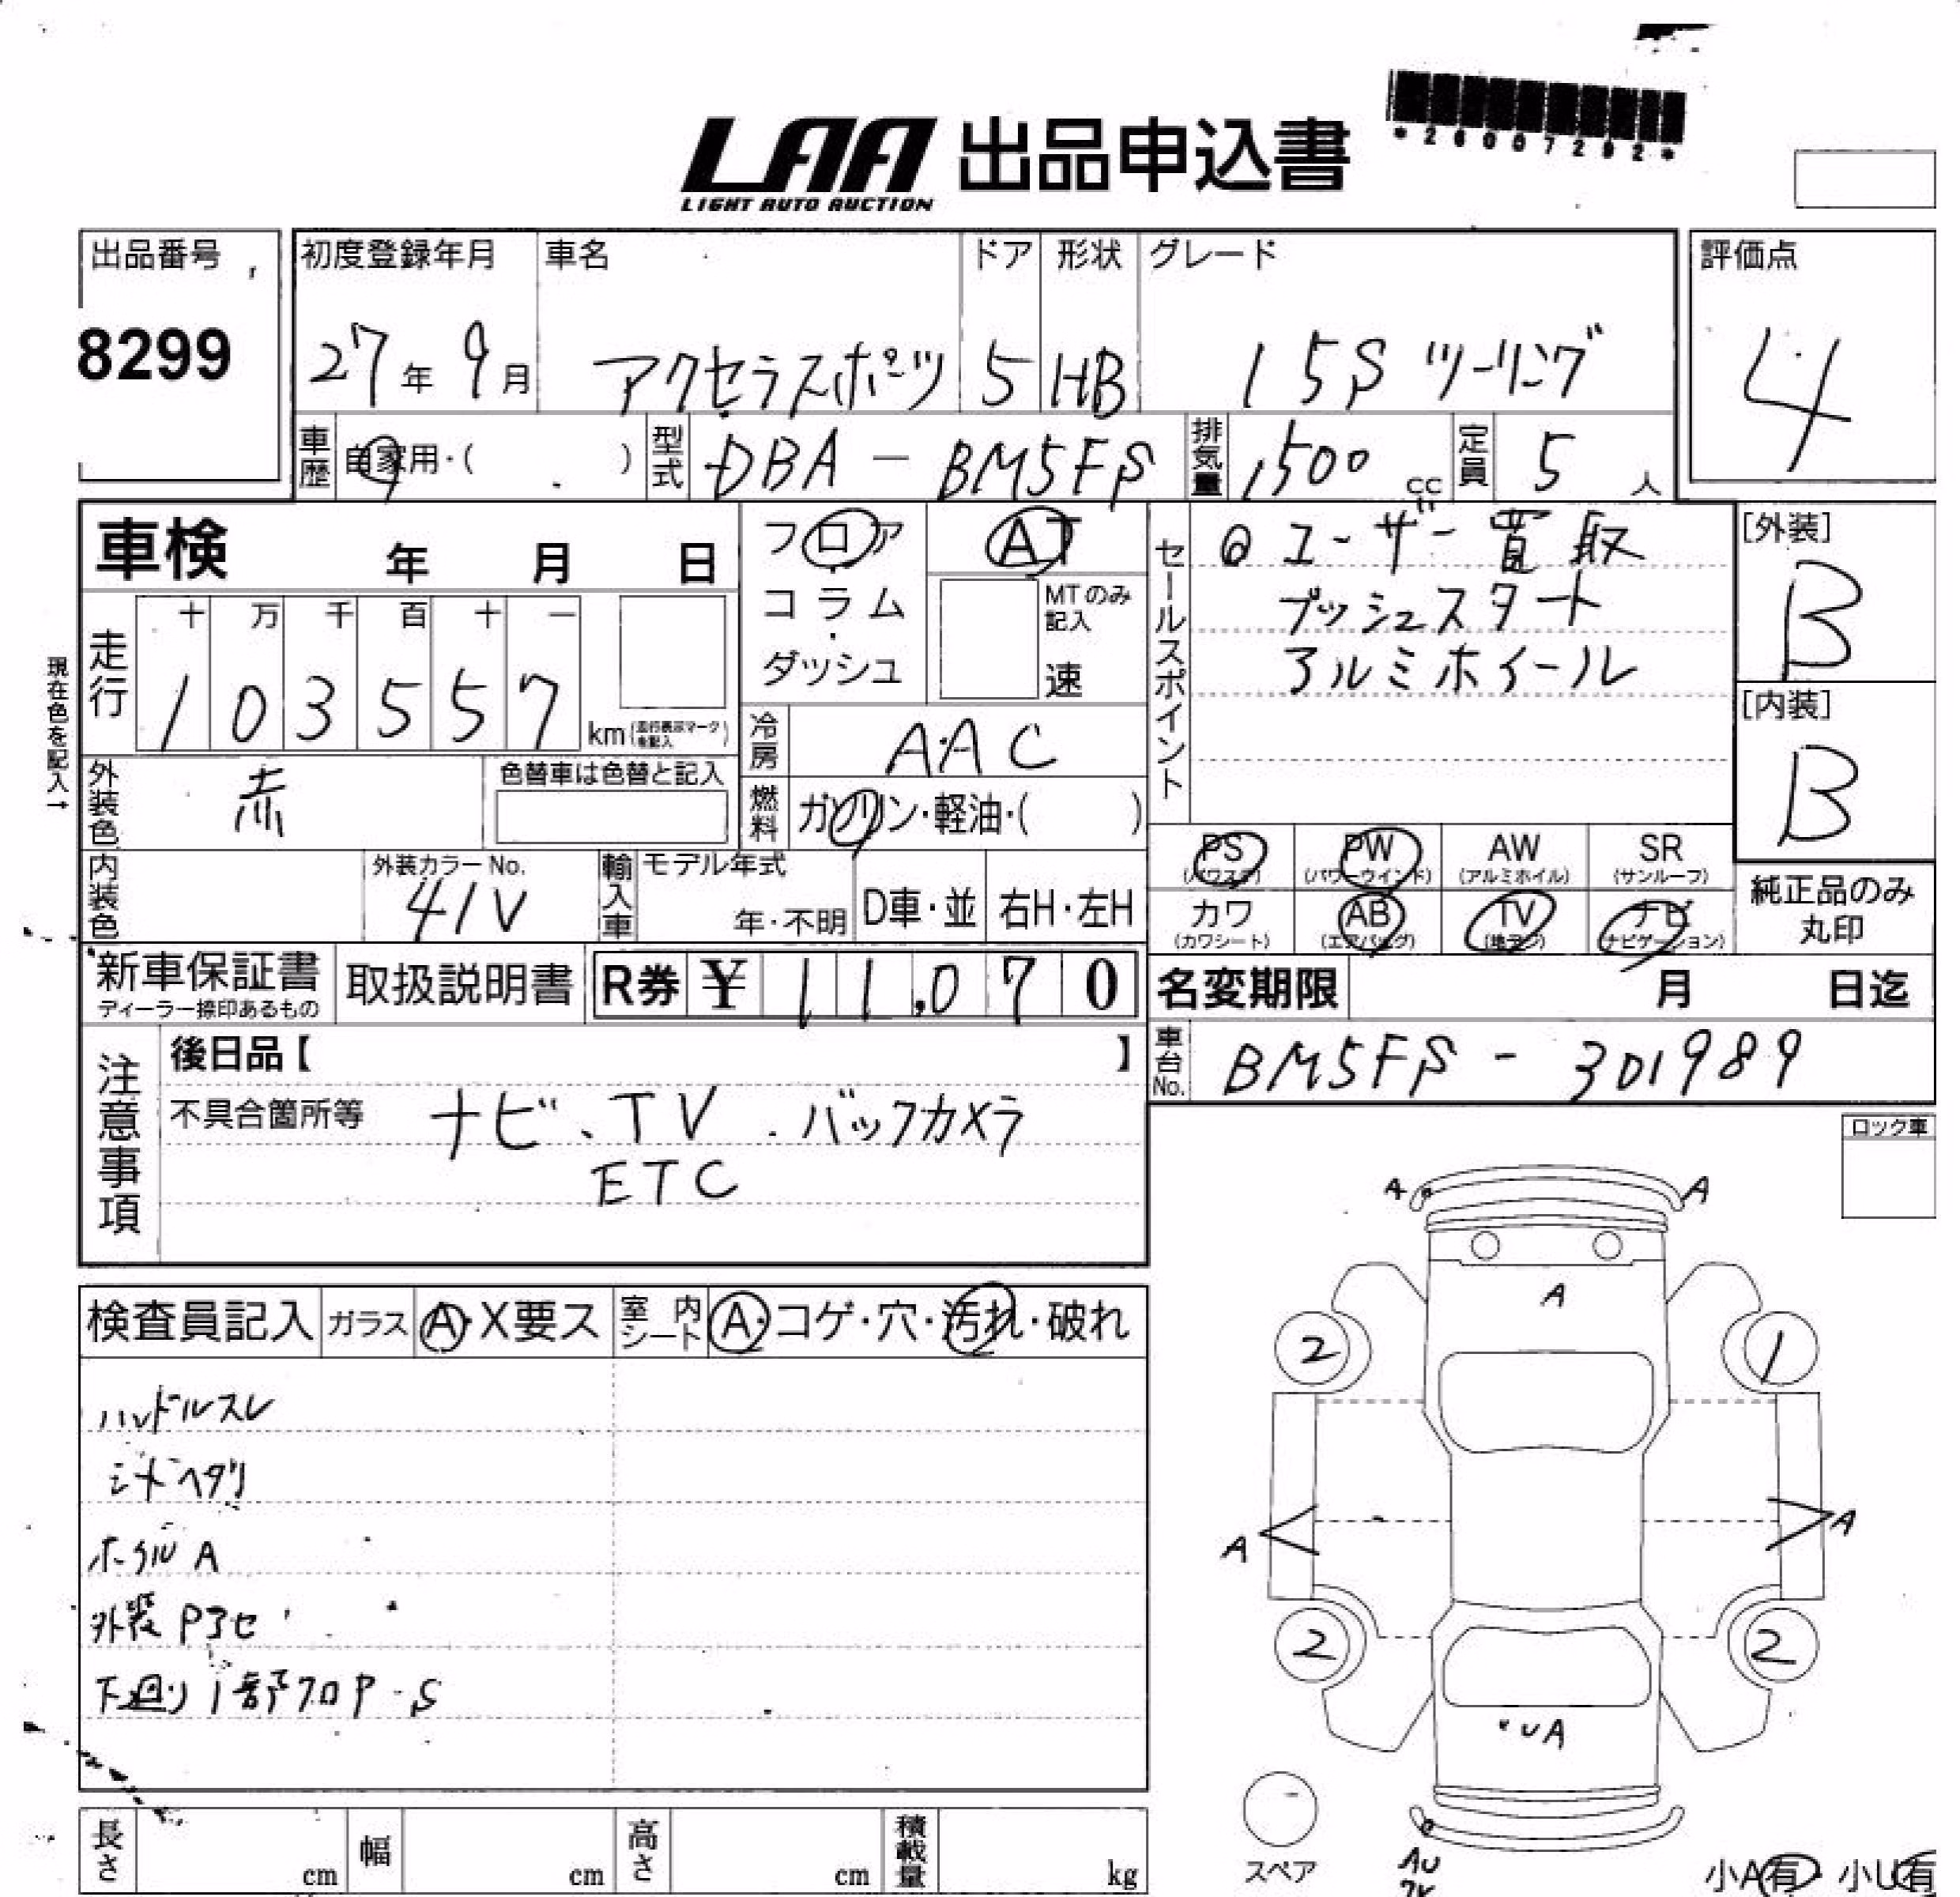 *26007292*
LAA 出品申込書
LIGHT AUTO AUCTION
出品番号
8299
初度登録年月 車名 ドア 形状 グレード
27年 9月 アクセラスポーツ 5 HB 15S ツーリング
評価点
4
車歴 自家用・( ) 型式 DBA - BM5FS 排気量 1500 cc 定員 5 人
車検 年 月 日
フロア
コラム
ダッシュ
AT
MTのみ記入
速
セールスポイント
◎ユーザー買取
プッシュスタート
アルミホイール
[外装]
B
[内装]
B
現在色を記入→
走行 十 万 千 百 十 一
1 0 3 5 5 7 km (走行表示マークを記入)
冷房 AAC
外装色 赤 色替車は色替と記入
燃料 ガソリン・軽油・( )
内装色 外装カラーNo. 41V
輸入車 モデル年式 年・不明 D車・並 右H・左H
PS (パワステ) PW (パワーウインド) AW (アルミホイル) SR (サンルーフ)
カワ (カワシート) AB (エアバッグ) TV (地デジ) ナビ (ナビゲーション)
純正品のみ
丸印
新車保証書 ディーラー捺印あるもの 取扱説明書 R券 ¥ 11,070
名変期限 月 日迄
車台No. BM5FS - 301989
注意事項
後日品【 】
不具合箇所等 ナビ、TV、バックカメラ
ETC
ロック車
検査員記入 ガラス A・X要ス 室内シート A・コゲ・穴・汚れ・破れ
ハンドルスレ
シートヘタリ
ホイルA
外装Pアセ
下廻り1部フロP-S
A A
A
2 1
A A
2 2
UA
スペア
AU
小A有・小U有
長さ cm 幅 cm 高さ cm 積載量 kg